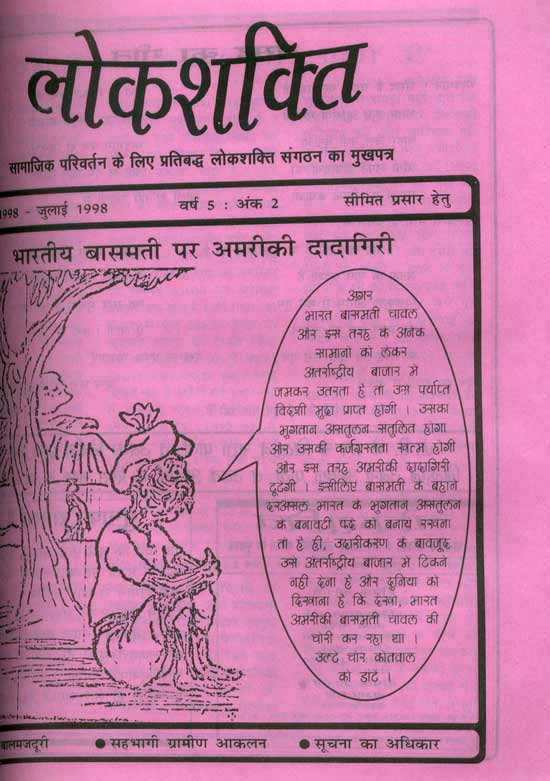 लोकशक्ति
सामाजिक परिवर्तन के लिए प्रतिबद्ध लोकशक्ति संगठन का मुखपत्र
1998 - जुलाई 1998 वर्ष 5 : अंक 2 सीमित प्रसार हेतु
भारतीय बासमती पर अमरीकी दादागिरी
अगर
भारत बासमती चावल
और इस तरह के अनेक
सामानों को लेकर
अंतर्राष्ट्रीय बाजार में
जमकर उतरता है तो उसे पर्याप्त
विदेशी मुद्रा प्राप्त होगी । उसका
भुगतान असंतुलन संतुलित होगा
और उसकी कर्जग्रस्तता खत्म होगी
और इस तरह अमरीकी दादागिरी
टूटेगी । इसीलिए बासमती के बहाने
दरअसल भारत के भुगतान असंतुलन
के बनावटी पर्दे को बनाये रखना
तो है ही, उदारीकरण के बावजूद
उसे अंतर्राष्ट्रीय बाजार में टिकने
नहीं देना है और दुनिया को
दिखाना है कि देखो, भारत
अमरीकी बासमती चावल की
चोरी कर रहा था ।
उल्टे चोर कोतवाल
को डांटे ।
बालमजदूरी ● सहभागी ग्रामीण आकलन ● सूचना का अधिकार